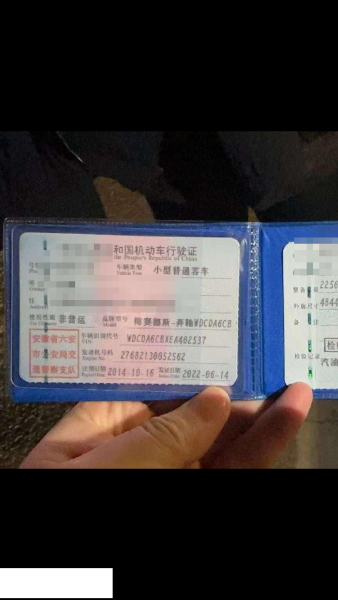 和国机动车行驶证
the People's Republic of China
车辆类型 小型普通客车
Vehicle Type
使用性质 非营运 品牌型号 梅赛德斯-奔驰WDCDA6CB
Use Character Model
安徽省六安
市公安局交
通警察支队
车辆识别代号 WDCDA6CBXEA402537
VIN
发动机号码 27682130052562
Engine No.
注册日期 2014-10-16 发证日期 2022-06-14
Register Date Issue Date
整备质量
外廓尺寸 4844
检验记录
汽油